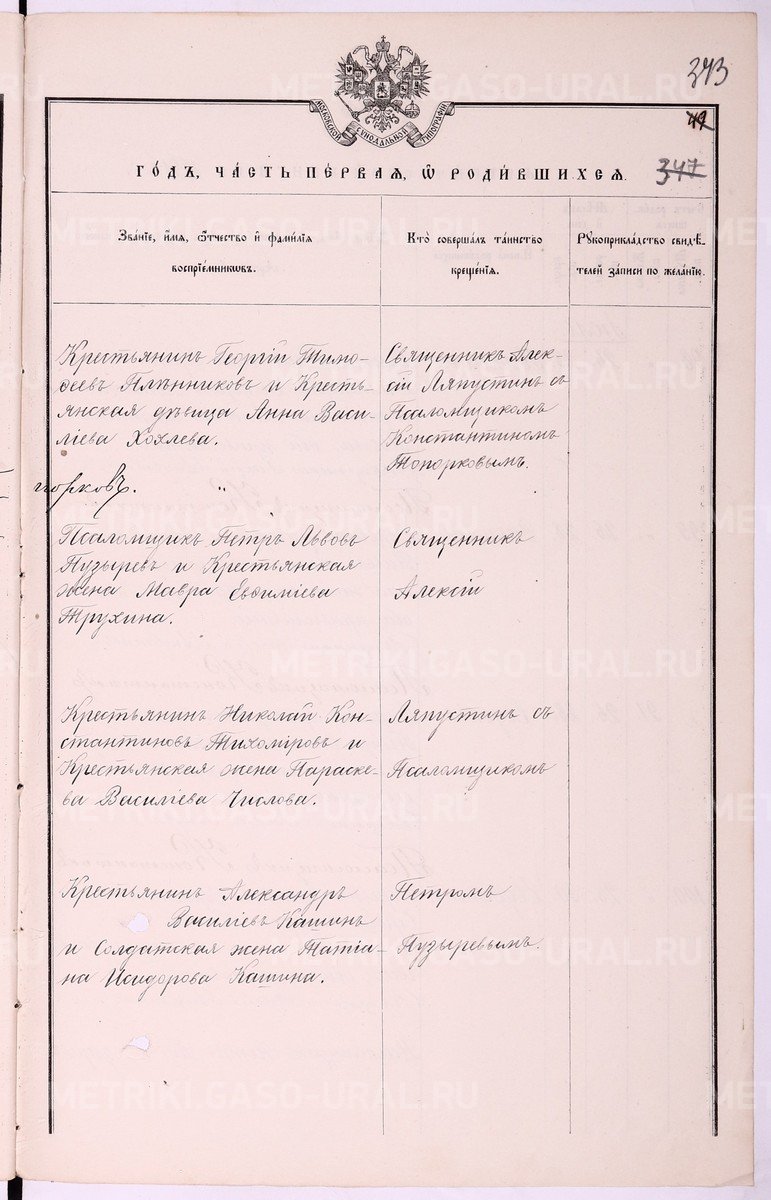 373
МОСКОВСКОЙ СѴНОДАЛЬНОЙ ТИПОГРАФІИ
49
347
ГО́ДЪ, ЧА́СТЬ ПЕ́РВАЯ, Ѽ РОДИ́ВШИХСЯ.
Зва́нїе, и҆́мя, ѻ҆́тчество и҆ фами́лїя
воспрїе́мникѡвъ.
Кто̀ соверша́лъ та́инство
креще́нїя.
Рꙋкоприкла́дство свидѣ́-
телей за́писи по жела́нїю.
Крестьянинъ Георгій Тимо-
ѳеевъ Плѣнниковъ и Кресть-
янская дѣвица Анна Васи-
ліева Хохлева.
Священникъ Алек-
сій Ляпустинъ съ
Псаломщикомъ
Константиномъ
Топорковымъ.
порковъ. "
Псаломщикъ Петръ Львовъ
Пузыревъ и Крестьянская
жена Мавра Евѳиміева
Трухина.
Священникъ
Алексій
Крестьянинъ Николай Кон-
стантиновъ Тихоміровъ и
Крестьянская жена Параске-
ва Василіева Числова.
Ляпустинъ съ
Псаломщикомъ
Крестьянинъ Александръ
Василіевъ Кашинъ
и Солдатская жена Татіа-
на Исидорова Кашина.
Петромъ
Пузыревымъ.
METRIKI.GASO-URAL.RU